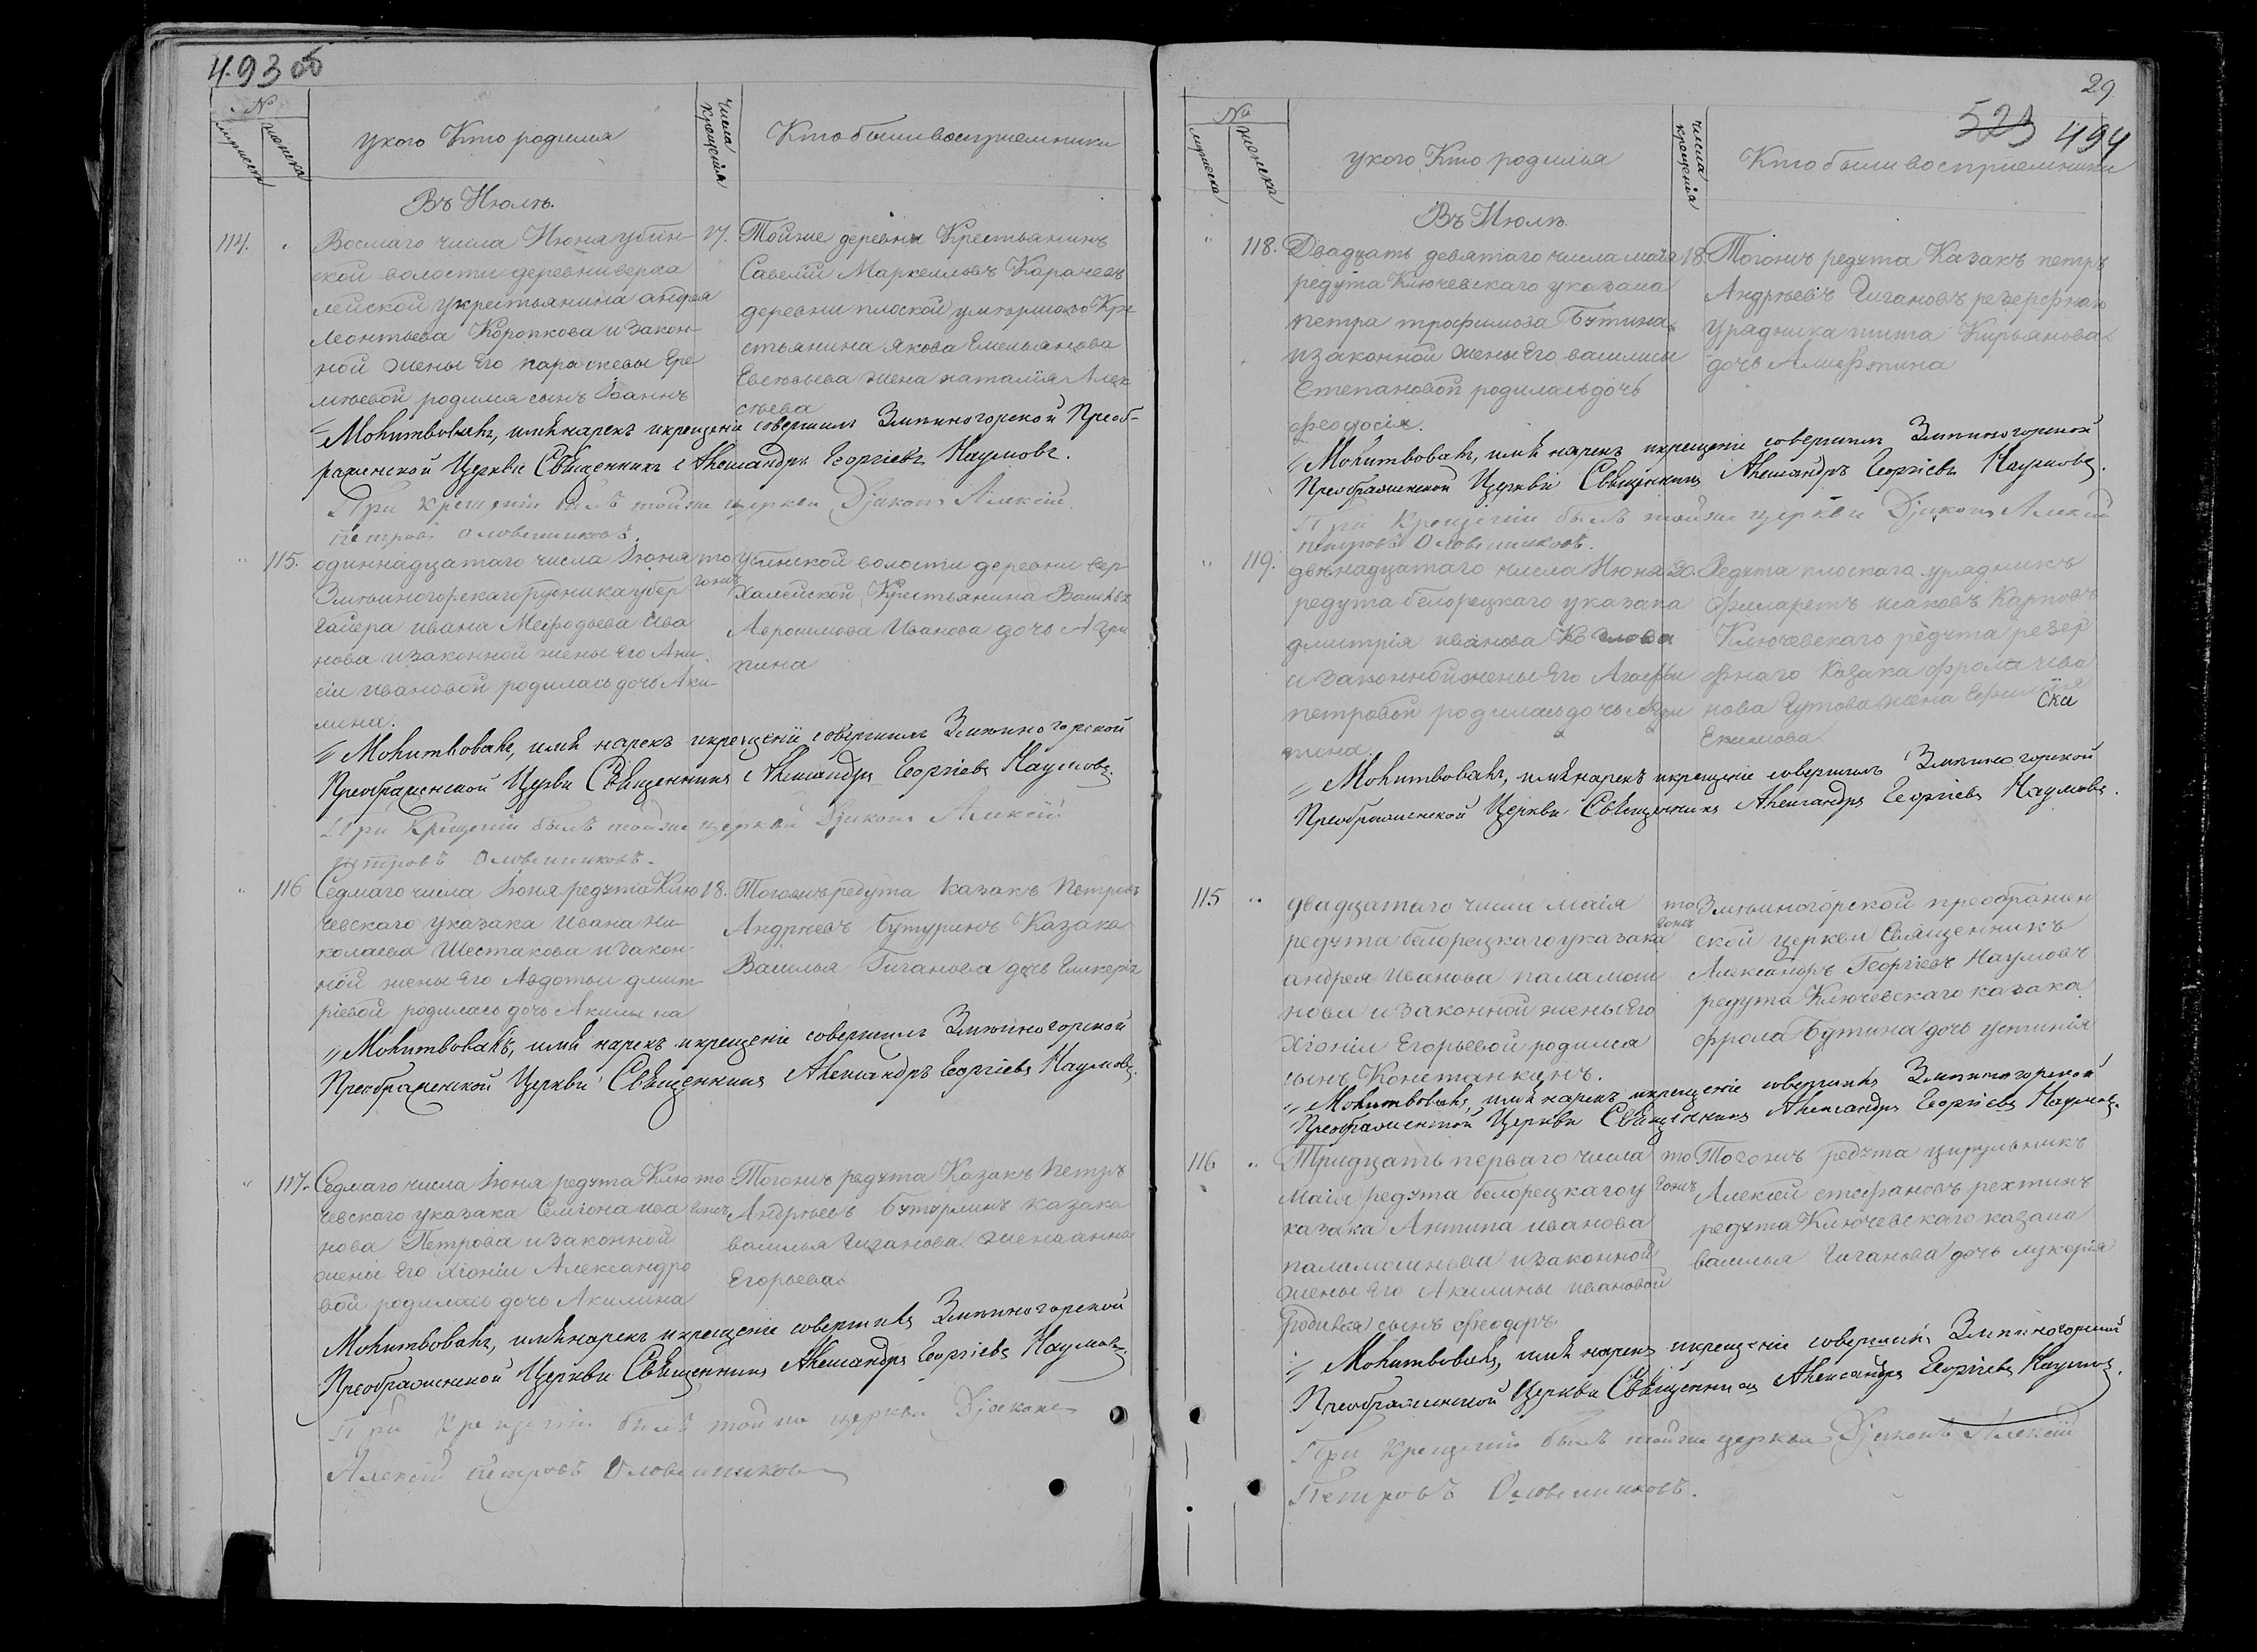 493 об
№
мужеск
женска
укого Кто родился
числа крещенія
Кто были восприемники
Въ Июлѣ.
114.
Восмаго числа Июня убин-
ской волости деревни верха
лейской укрестьянина андрея
Леонтьева Коропкова и закон-
ной жены Его параскевы Ере
мѣевой родился сынъ Иоаннъ
17.
Тойже деревни Крестьянинъ
Савелій Маркелловъ Карачевъ
деревни плоской умершаго Кре
стьянина Якова Емельянова
Евсѣвьева жена наталія Алек
сѣева
Молитвовалъ, имя нарекъ икрещеніе совершилъ Змѣиногорской Преоб-
раженской Церкви Священникъ Александръ Георгіевъ Наумовъ.
При крещеніи былъ тойже церкви Діаконъ Алексій
Петровъ Оловешниковъ.
115.
одиннадцатаго числа Июня
Змѣиногорскаго рудника убер
гаиера ивана Мефодьева Ива
нова изаконной жены Его Ани
сіи ивановой родилась дочь Аки-
лина.
того ж
убинской волости деревни вер
халейской Крестьянина Василья
Авросимова Иванова дочь Агри
пина
Молитвовалъ, имя нарекъ икрещеніе совершилъ Змѣиногорской
Преображенской Церкви Священникъ Александръ Георгіевъ Наумовъ.
При Крещеніи былъ тойже церкви Діаконъ Алексій
Петровъ Оловешниковъ.
116
Седмаго числа Июня редута Клю
чевскаго указака Ивана Ни-
колаева Шестакова изакон-
ной жены Его Авдотьи дмит
ріевой родилась дочь Акилина
18.
Тогожъ редута казакъ Петръ
Андрѣевъ Бутуринъ Казака
Василья Гиганова дочь Гликерія
Молитвовалъ, имя нарекъ икрещеніе совершилъ Змѣиногорской
Преображенской Церкви Священникъ Александръ Георгіевъ Наумовъ.
117.
Седмаго числа Июня редута Клю
чевскаго указака Семіона ива
нова Петрова изаконной
жены Его Хіоніи Александро
вой родилась дочь Акилина
то гожъ
Тогожъ редута Казакъ Петръ
Андрѣевъ Бутурлинъ казака
василья Гиганова жена анна
Егорьева
Молитвовалъ, имя нарекъ икрещеніе совершилъ Змѣиногорской
Преображенской Церкви Священникъ Александръ Георгіевъ Наумовъ.
При Крещеніи былъ тойже церкви Діаконъ
Алексій Петровъ Оловешниковъ
29
523 494
№
мужеска
женска
укого Кто родился
числа крещенія
Кто были восприемники
Въ Июлѣ.
118.
Двадцать девятаго числа маія
редута Ключевскаго указака
петра трофимова Бутина
изаконной жены Его василисы
Степановой родилась дочь
феодосія.
18.
Тогожъ редута Казакъ петръ
Андрѣевъ Гигановъ резерфнаго
урядника тита Кирьянова
дочь
Молитвовалъ, имя нарекъ икрещеніе совершилъ Змѣиногорской
Преображенской Церкви Священникъ Александръ Георгіевъ Наумовъ.
При Крещеніи былъ тойже церкви Діаконъ Алексій
Петровъ Оловешниковъ.
119.
двѣнадцатаго числа Июня
редута белорецкаго указака
дмитрія иванова
изаконной жены Его Агафьи
петровой родилась дочь Агри
пина.
20.
Редута плоскаго урядникъ
Филаретъ исаковъ Карповъ
Ключевскаго редута резер
фнаго Казака фрола ива
нова Гутова жена
Екимова
Молитвовалъ, имя нарекъ икрещеніе совершилъ Змѣиногорской
Преображенской Церкви Священникъ Александръ Георгіевъ Наумовъ.
115
двадцатаго числа маія
редута белорецкаго указака
андрея Иванова паламош
нова изаконной жены Его
Хіоніи Егорьевой родился
сынъ Константинъ.
то гожъ
Змѣиногорской преображен
ской церкви Священникъ
Александръ Георгіевъ Наумовъ
редута Ключевскаго казака
фрола Бутина дочь устинія
Молитвовалъ, имя нарекъ икрещеніе совершилъ Змѣиногорской
Преображенской Церкви Священникъ Александръ Георгіевъ Наумовъ.
116
Тридцать перваго числа
Маія редута белорецкаго у
казака Антипа иванова
паламошнова изаконной
жены Его Акилины ивановой
родился сынъ феодоръ.
то гожъ
Тогожъ редута цирульникъ
Алексей стефановъ рехтинъ
редута Ключевскаго казака
василья Гиганова дочь лукерія
Молитвовалъ, имя нарекъ икрещеніе совершилъ Змѣиногорской
Преображенской Церкви Священникъ Александръ Георгіевъ Наумовъ.
При Крещеніи былъ тойже церкви Діаконъ Алексій
Петровъ Оловешниковъ.